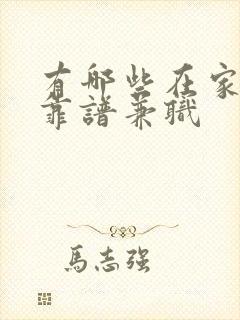 有哪些在家
靠譜兼職
馬志强